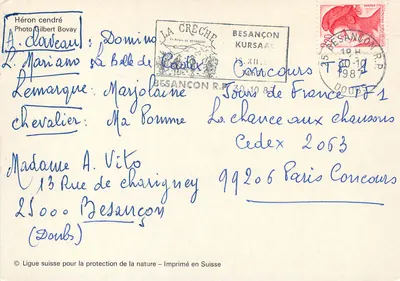 Héron cendré
Photo Gilbert Bovay
A. Claveau : Domino
L. Mariano La Belle de Cadix
Lemarque : Marjolaine
Chevalier : Ma Pomme
Madame A. Vito
13 Rue de Charigney
25000 Besançon
(Doubs)
LA CRÈCHE
BESANÇON
KURSAAL
BESANÇON R.P.
30.10.87
BESANÇON R.P.
30-10
1987
Concours TF1
Tours de France F1
La chance aux chansons
Cedex 2063
99206 Paris Concours
© Ligue suisse pour la protection de la nature – Imprimé en Suisse